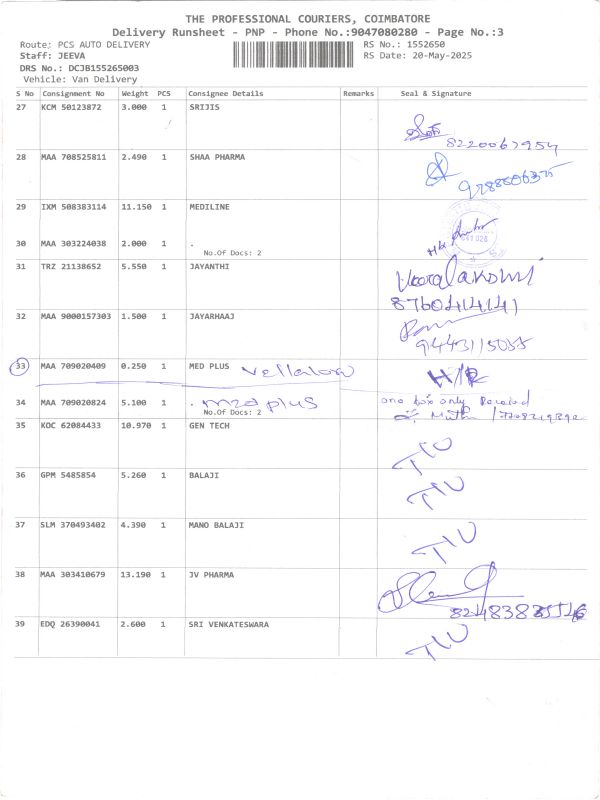 THE PROFESSIONAL COURIERS, COIMBATORE
Delivery Runsheet - PNP - Phone No.:9047080280 - Page No.:3
Route; PCS AUTO DELIVERY
RS No.: 1552650
Staff: JEEVA
RS Date: 20-May-2025
DRS No.: DCJB155265003
Vehicle: Van Delivery
S No Consignment No Weight PCS Consignee Details Remarks Seal & Signature
27 KCM 50123872 3.000 1 SRIJIS
8220067954
28 MAA 708525811 2.490 1 SHAA PHARMA
29 IXM 508383114 11.150 1 MEDILINE
30 MAA 303224038 2.000 1 .
No.Of Docs: 2
31 TRZ 21138652 5.550 1 JAYANTHI
Veeralakshmi
8760414141
32 MAA 9000157303 1.500 1 JAYARHAAJ
33 MAA 709020409 0.250 1 MED PLUS Vellalore
34 MAA 709020824 5.100 1 . Med plus one box only
No.Of Docs: 2
35 KOC 62084433 10.970 1 GEN TECH
36 GPM 5485854 5.260 1 BALAJI
37 SLM 370493402 4.390 1 MANO BALAJI
38 MAA 303410679 13.190 1 JV PHARMA
39 EDQ 26390041 2.600 1 SRI VENKATESWARA